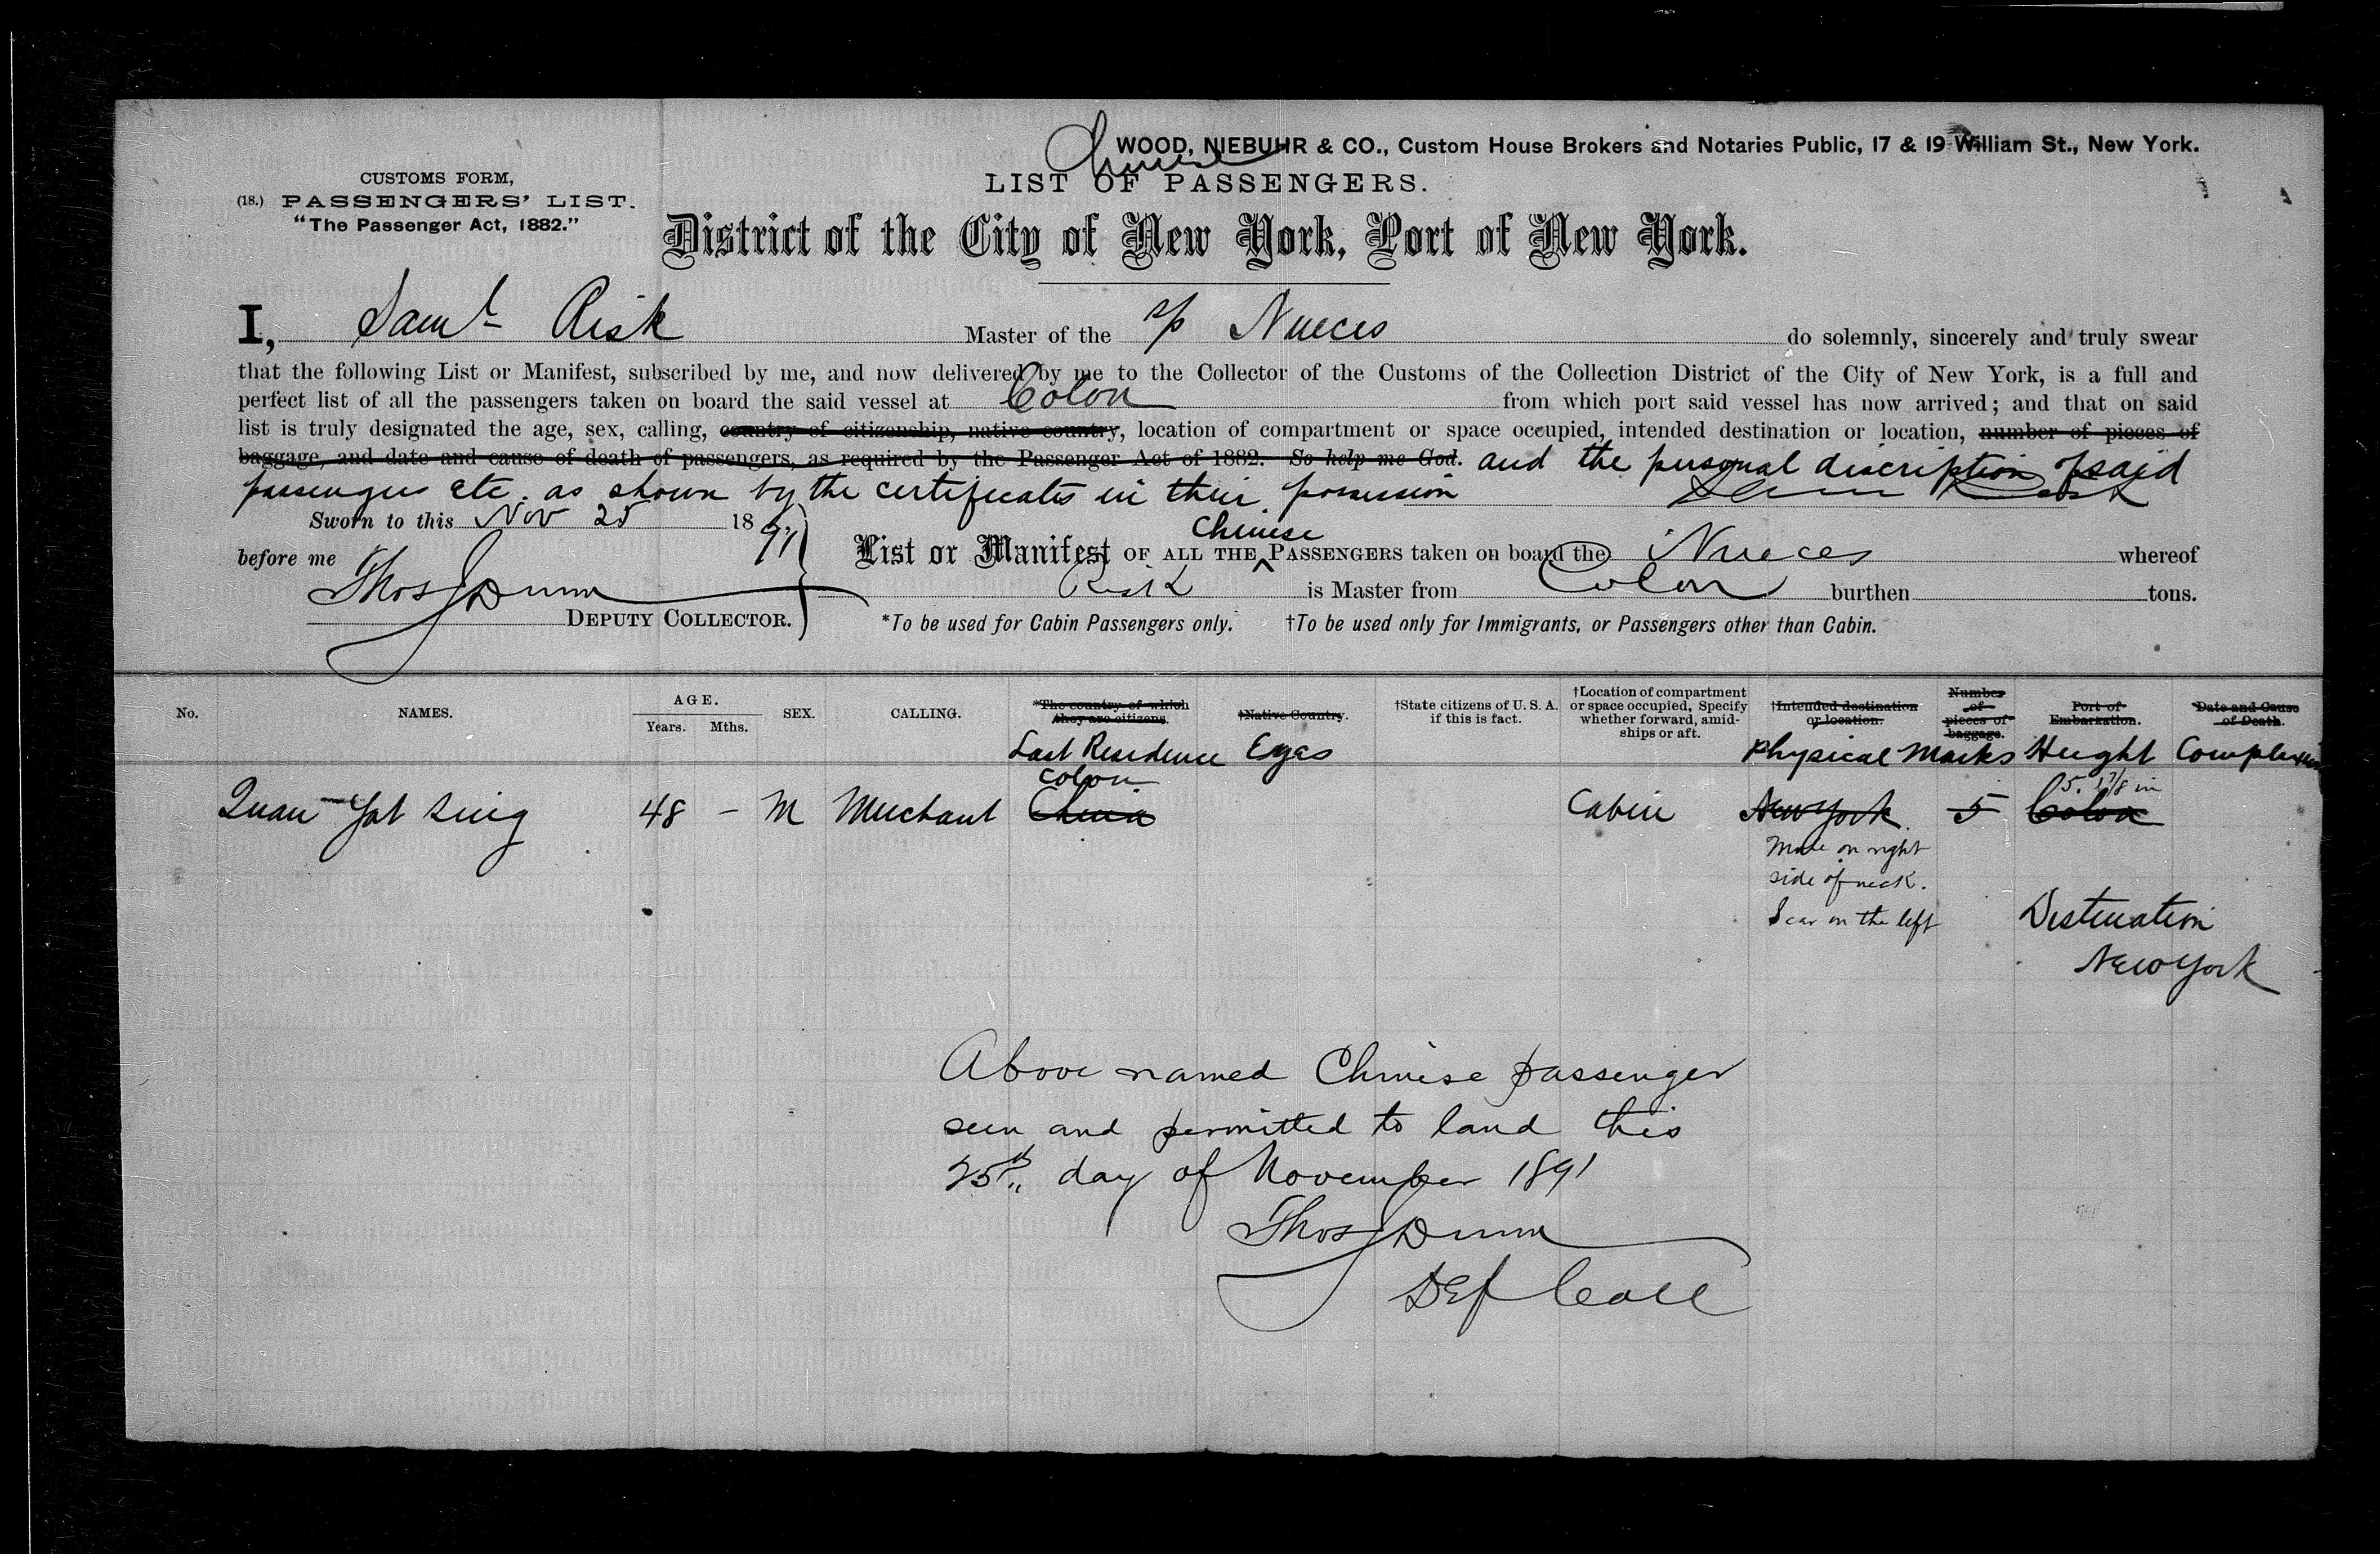 WOOD, NIEBUHR & CO., Custom House Brokers and Notaries Public, 17 & 19 William St., New York.
Chinese
CUSTOMS FORM,
(18.) PASSENGERS' LIST.
"The Passenger Act, 1882."
LIST OF PASSENGERS.
District of the City of New York, Port of New York.
I, Saml Risk Master of the s/s Nueces do solemnly, sincerely and truly swear
that the following List or Manifest, subscribed by me, and now delivered by me to the Collector of the Customs of the Collection District of the City of New York, is a full and
perfect list of all the passengers taken on board the said vessel at Colon from which port said vessel has now arrived; and that on said
list is truly designated the age, sex, calling, country of citizenship, native country, location of compartment or space occupied, intended destination or location, number of pieces of
baggage, and date and cause of death of passengers, as required by the Passenger Act of 1882. So help me God. and the personal description of said
passengers etc. as shown by the certificates in their possession
Saml Risk
Sworn to this Nov 25 1891
before me
Thos J Dunn
DEPUTY COLLECTOR.
List or Manifest OF ALL THE Chinese PASSENGERS taken on board the Nueces whereof
Risk is Master from Colon burthen tons.
*To be used for Cabin Passengers only. †To be used only for Immigrants, or Passengers other than Cabin.
No. NAMES. AGE. Years. Mths. SEX. CALLING. *The country of which they are citizens. †Native Country. †State citizens of U. S. A. if this is fact. †Location of compartment or space occupied, Specify whether forward, amidships or aft. †Intended destination or location. Number of pieces of baggage. Port of Embarkation. Date and Cause of Death.
Last Residence Eyes Physical Marks Height Complexion
Colon 5. 1 7/8 in
Quan Yat Sing 48 – M Merchant China Cabin New York 5 Colon
Mole on right
side of neck.
Scar on the left
Destination
New York
Above named Chinese passenger
seen and permitted to land this
25th day of November 1891
Thos J Dunn
Dep Coll